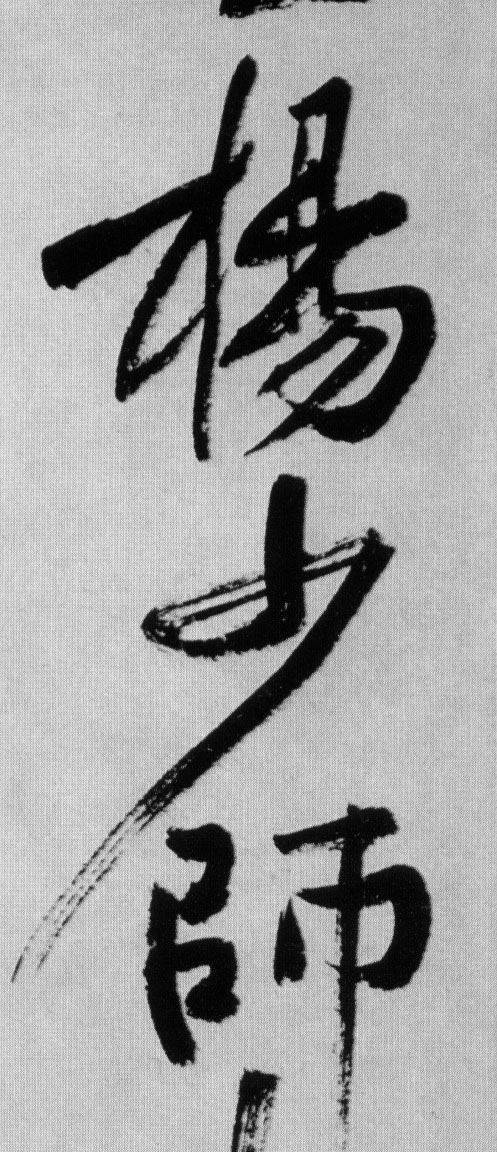 楊少師